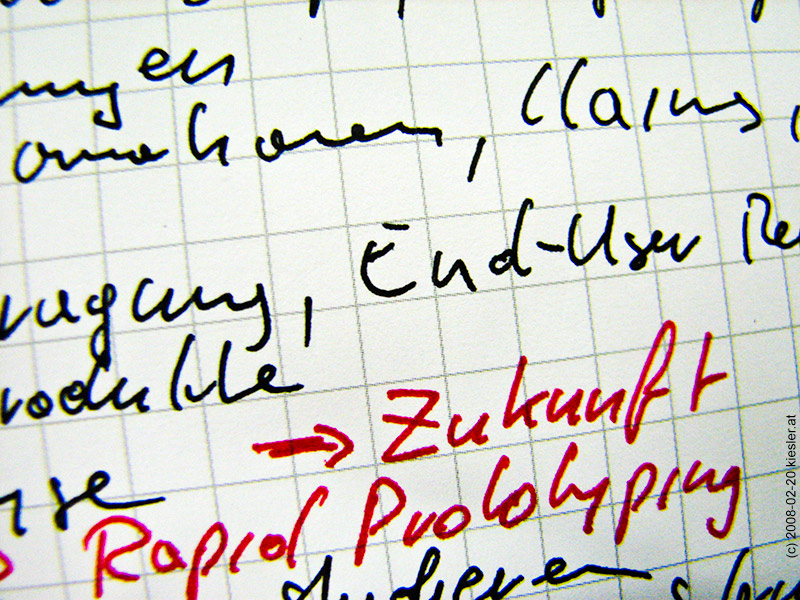 ungen
omationen, Claims,
ragung, End-User Re
rodukte
→ Zukunft
Rapid Prototyping
(c) 2008-02-20 kiesler.at